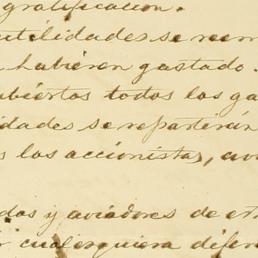 gratificacion.
utilidades se reem
hubieren gastado.
abiertos todos los ga
idades se repartirán
s los accionistas, avi
dos y aviadores de est
r cualesquiera difere